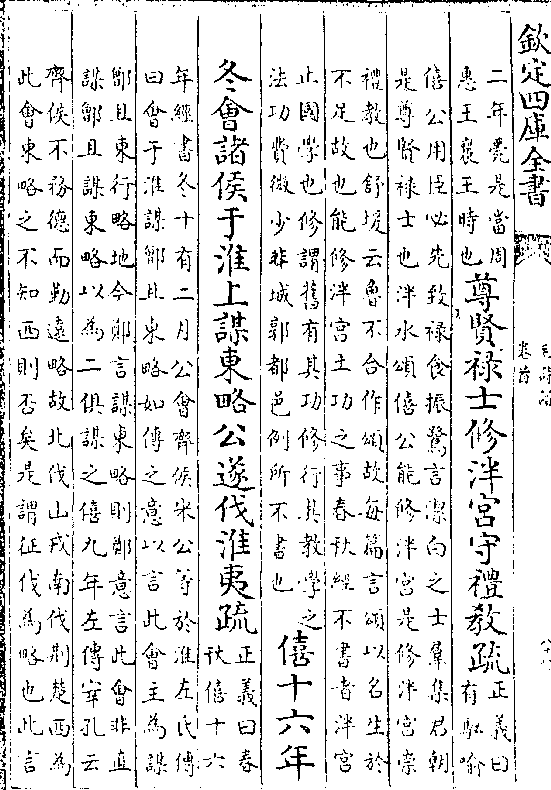 欽定四庫全書
卷首
二年薨是當周
惠王襄王時也
尊賢祿士修泮宮守禮教疏
正義曰
有駜喻
僖公用臣必先致祿食振鷺言潔白之士羣集君朝
是尊賢祿士也泮水頌僖公能修泮宮是修泮宮崇
禮教也舒瑗云魯不合作頌故每篇言頌以名生於
不足故也能修泮宮土功之事春秋經不書者泮宮
止國學也修謂舊有其功修行其教學之
法功費微少非城郭都邑例所不書也
僖十六年
冬會諸侯于淮上謀東略公遂伐淮夷疏
正義曰春
秋僖十六
年經書冬十有二月公會齊侯宋公等於淮左氏傳
曰會于淮謀鄫且東略如傳之意以言此會主為謀
鄫且東行略地今鄭言謀東略則鄭意言此會非直
謀鄫且謀東略以為二俱謀之僖九年左傳宰孔云
齊侯不務德而勤遠略故北伐山戎南伐荆楚西為
此會東略之不知西則否矣是謂征伐為略也此言